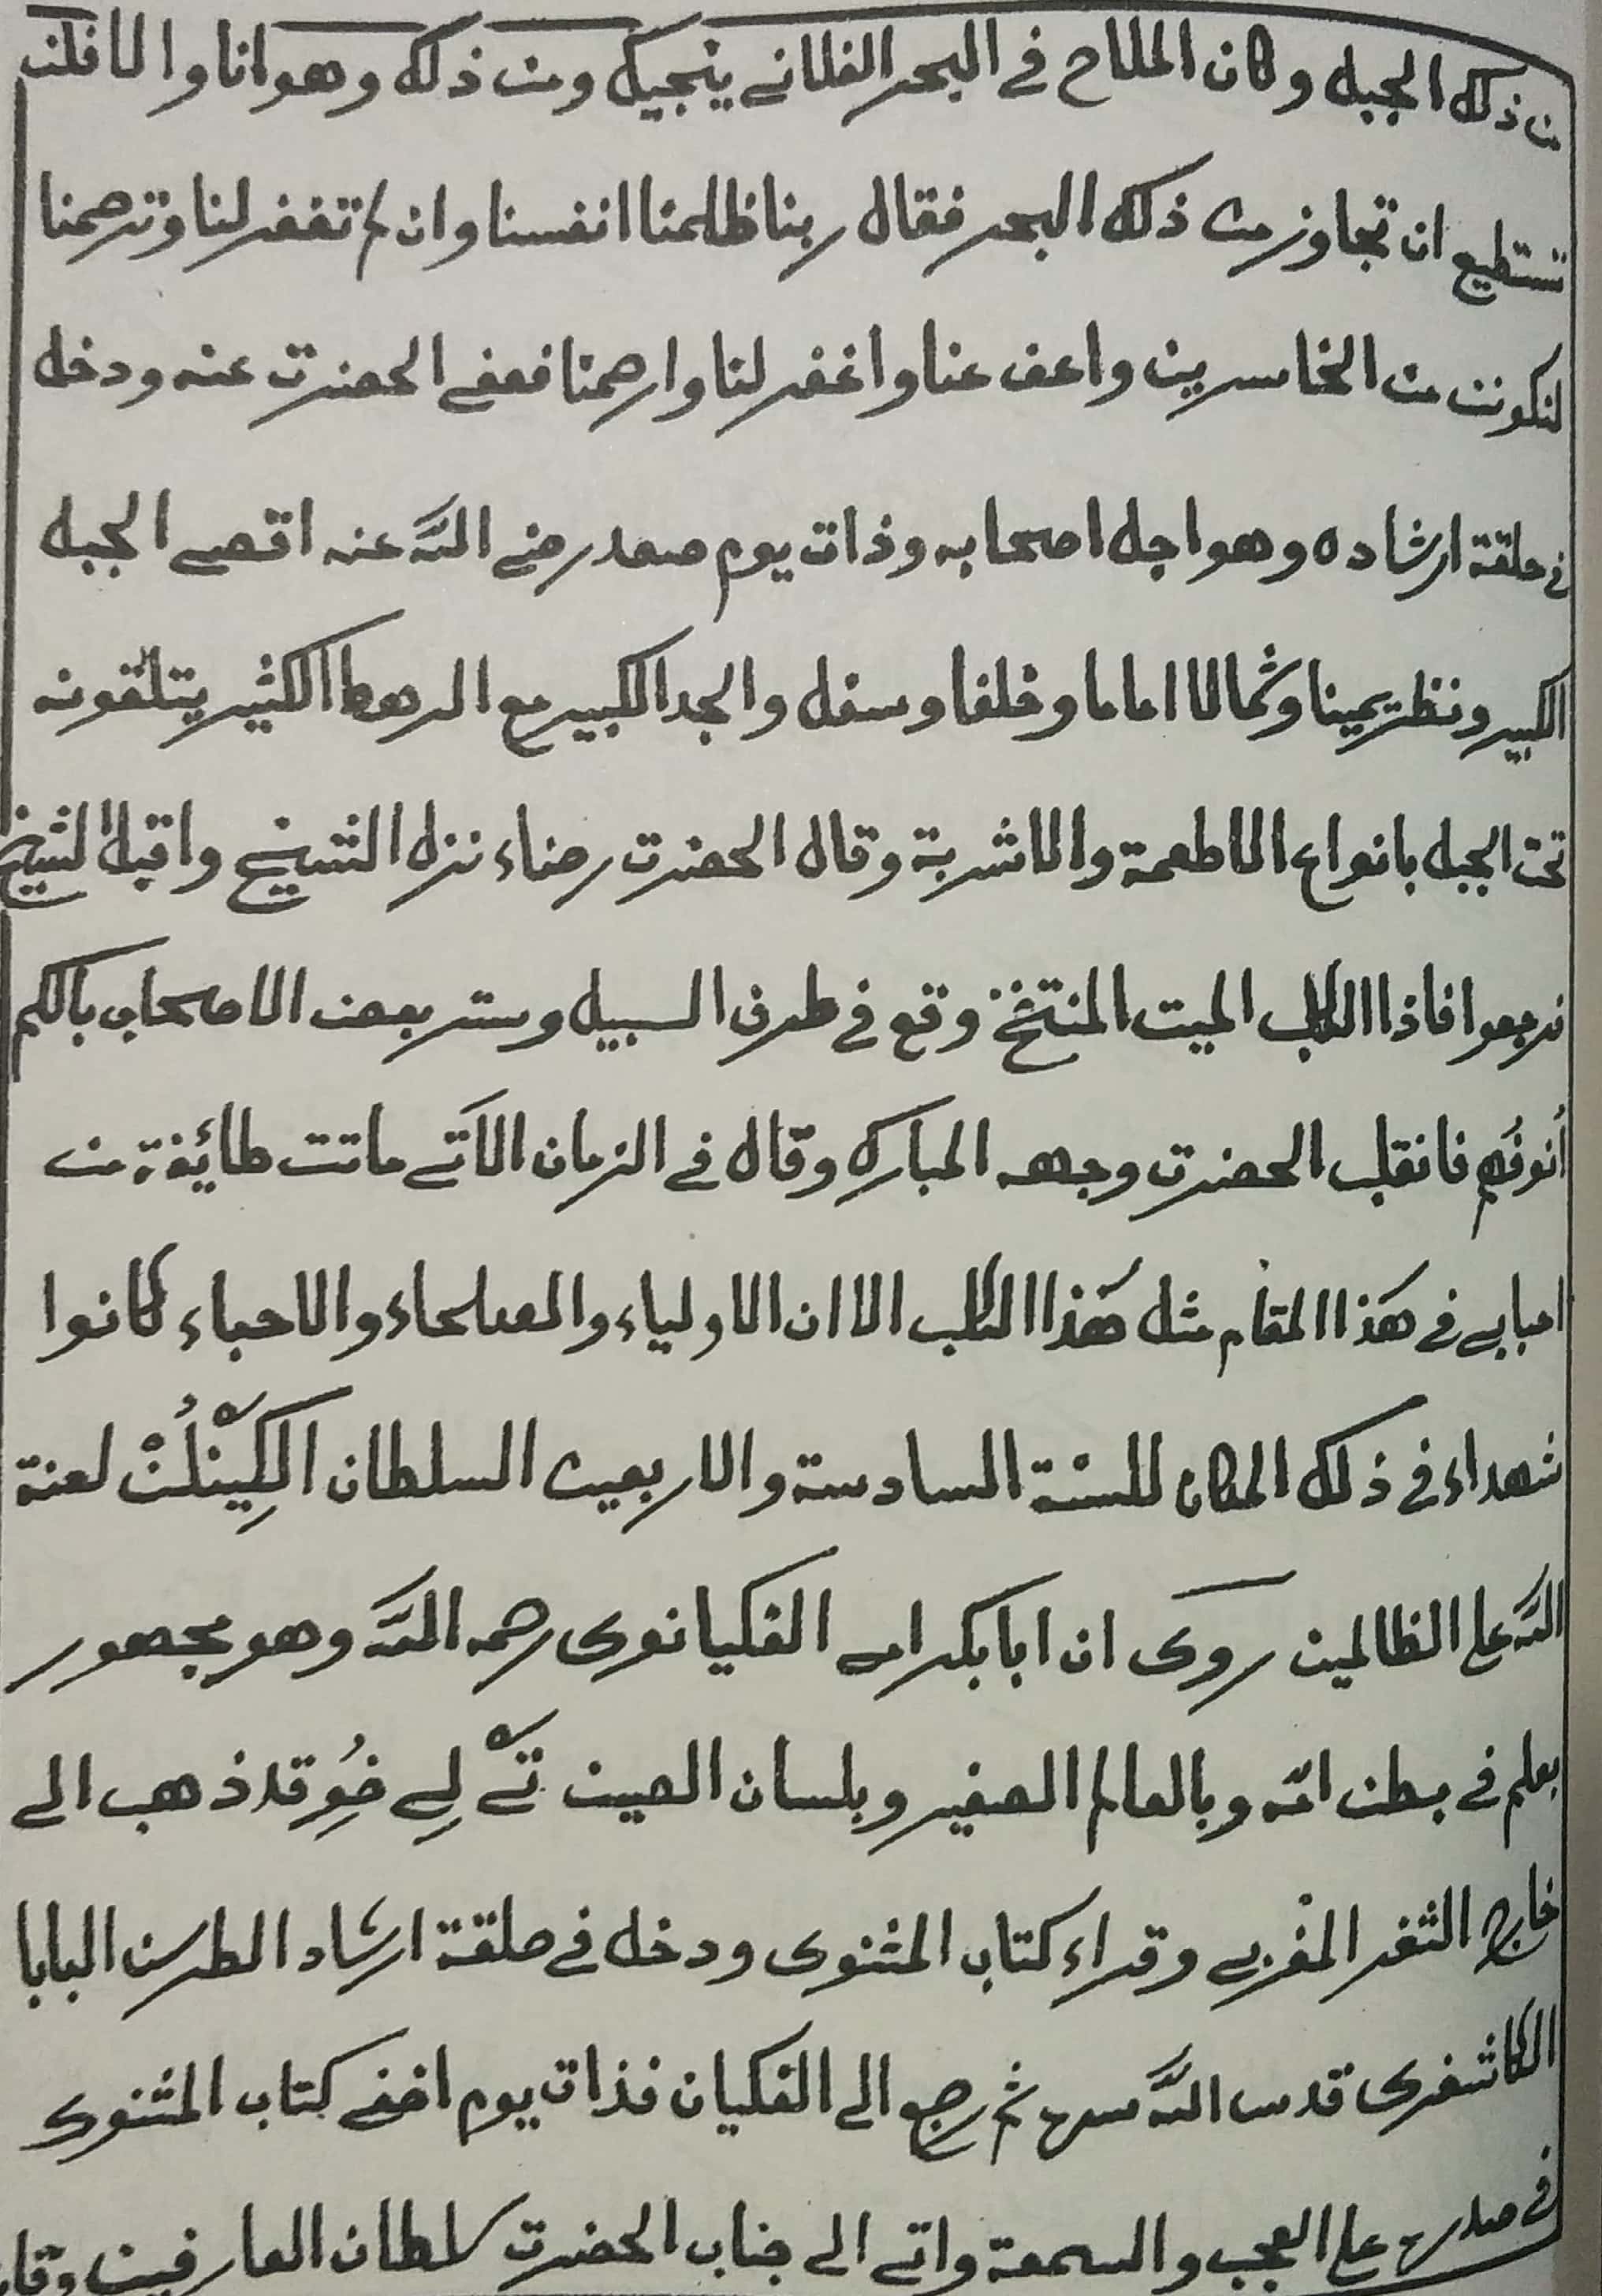 من ذلك الجبل وكان الملاح في البحر الفلاني ينجيك ومن ذلك وهو انا والا فلن
تستطيع ان تجاوز من ذلك البحر فقال ربنا ظلمنا انفسنا وان لم تغفر لنا وترحمنا
لنكونن من الخاسرين واعف عنا واغفر لنا وارحمنا فعفى الحضرت عنه ودخل
في حلقة ارشاده وهو اجل اصحابه وذات يوم صعد رضي اللّه عنه اقصى الجبل
الكبير ونظر يمينا وشمالا اماما وخلفا وسفل والجد الكبير مع الرهط الكثير يتلقونه
تحت الجبل بانواع الاطعمة والاشربة وقال الحضرت رضاء نزل الشيخ واقبل الشيخ
فرجعوا فاذا الكلب الميت المنتفخ وقع في طرف السبيل وستر بعض الاصحاب بالكم
أنوفهم فانقلب الحضرت وجهه المبارك وقال في الزمان الآتي ماتت طائفة من
احبابي في هذا المقام مثل هذا الكلب الا ان الاولياء والصلحاء والاحباء كانوا
شهداء في ذلك المكان للسنة السادسة والاربعين السلطان الكِينلُنْ لعنة
اللّه على الظالمين روى ان ابا بكر الفكيانوى رحمه اللّه وهو مجهور
بعلم في بطن امّه وبالعالم الصغير وبلسان الصين تَىْ لِى خُوِ قد ذهب الى
خارج الثغر المغربي وقراء كتاب المثنوى ودخل في حلقة ارشاد البابا
الكاشغرى قدس اللّه سره ثم رجع الى الفكيان فذات يوم اخفى كتاب المثنوى
في صدره على العجب والسمعة واتى الى جناب الحضرت سلطان العارفين وقال